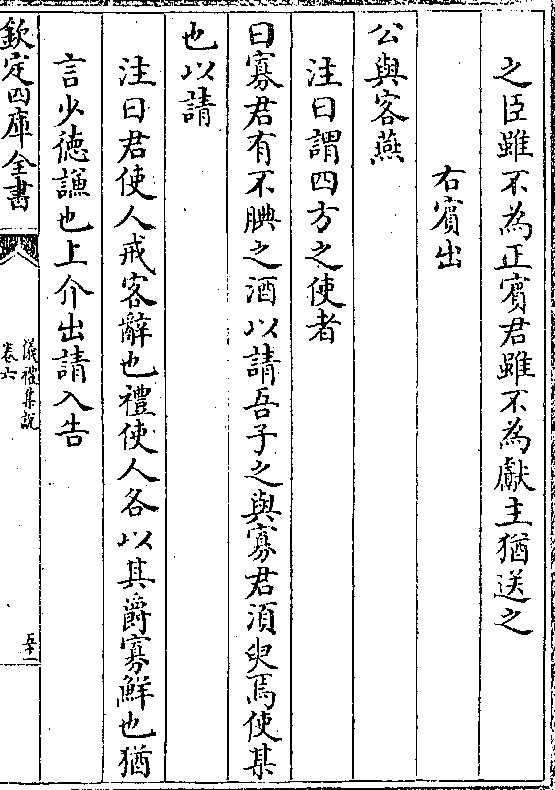 之臣雖不為正賓君雖不為獻主猶送之
右賓出
公與客燕
注曰謂四方之使者
曰寡君有不腆之酒以請吾子之與寡君須臾焉使某
也以請
注曰君使人戒客辭也禮使人各以其爵寡鮮也猶
言少徳謙也上介出請入告
欽定四庫全書
儀禮集說
卷六
五十一